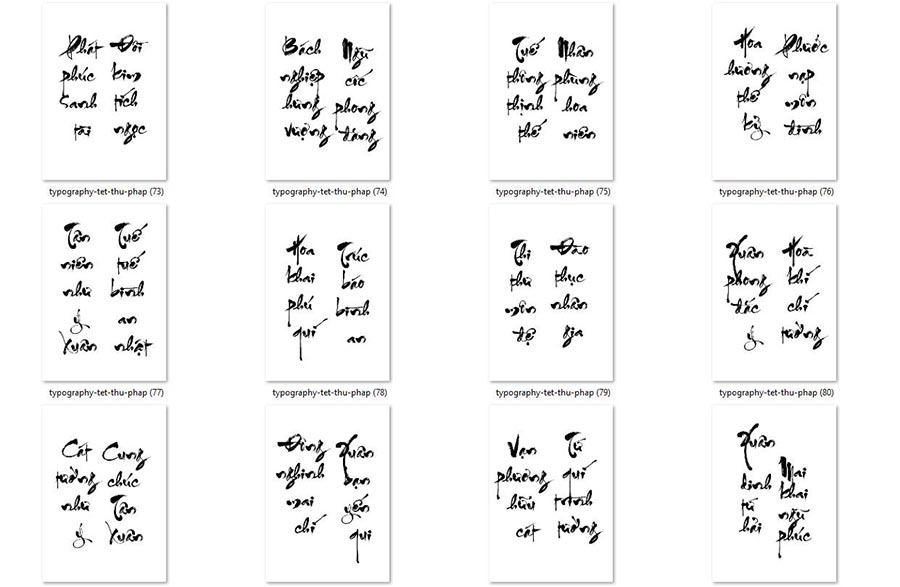 Phát phúc Sanh tài
Đôi kim tích ngọc
Bách nghiệp hưng vượng
Ngũ cốc phong đăng
Tuế phùng thịnh thế
Nhân phùng hoa niên
Hoa hương thế kỷ
Phước nạp môn đình
typography-tet-thu-phap (73)
typography-tet-thu-phap (74)
typography-tet-thu-phap (75)
typography-tet-thu-phap (76)
Tân niên như ý Xuân
Tuế tuế bình an nhật
Hoa khai phú quí
Trúc báo bình an
Thi thư môn đệ
Đào thục nhân gia
Xuân phong đắc ý
Hoà khí chí tường
typography-tet-thu-phap (77)
typography-tet-thu-phap (78)
typography-tet-thu-phap (79)
typography-tet-thu-phap (80)
Cát tường như ý
Cung chúc Tân Xuân
Đông nghinh mai chí
Xuân yến qui
Vạn phương hữu cát
Tứ quí trình tường
Xuân đinh tứ hải
Mai khai ngũ phúc